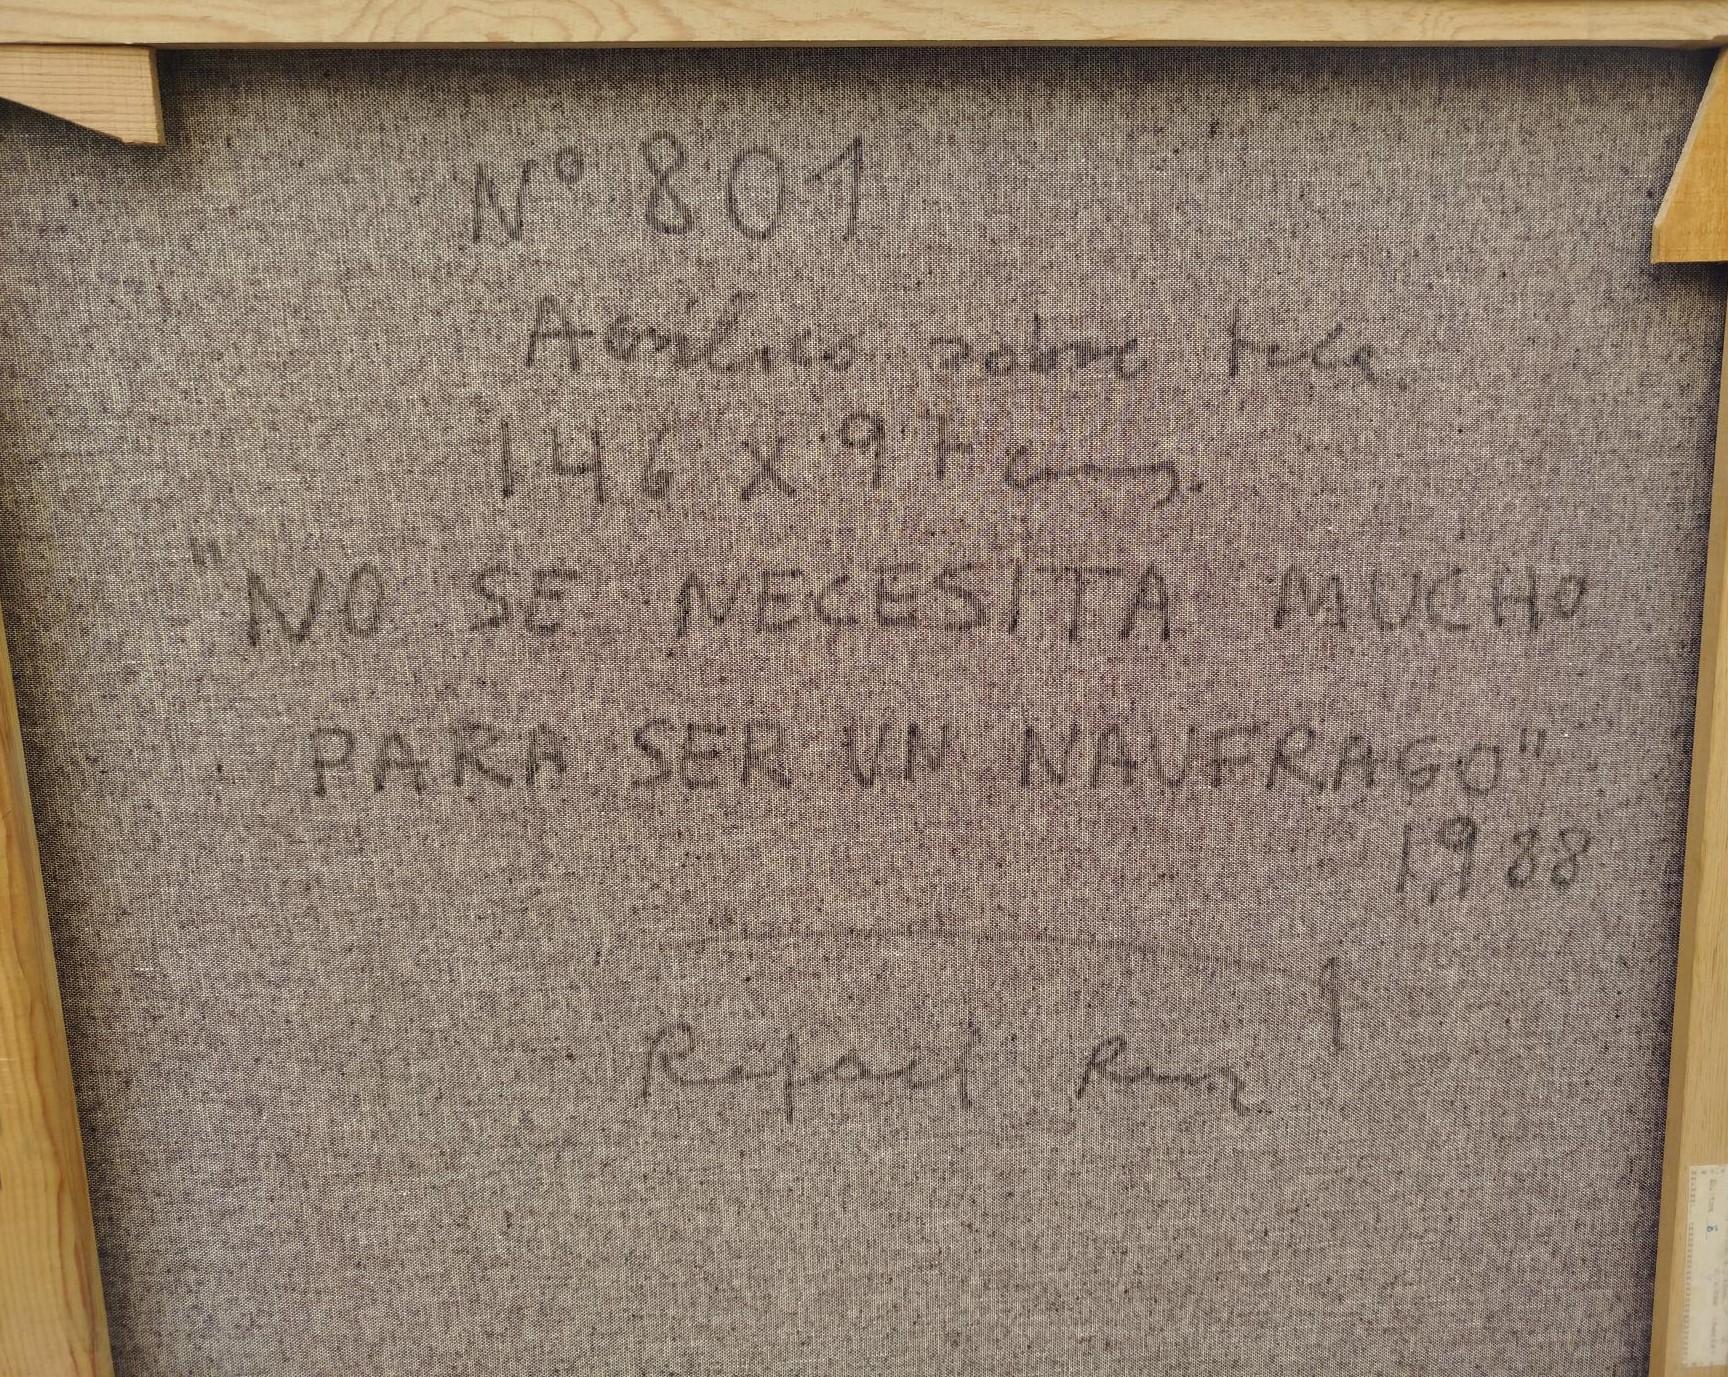 Nº 801
Acrílico sobre tela.
146 x 97 cms.
"NO SE NECESITA MUCHO
PARA SER UN NAUFRAGO"
1988
Rafael